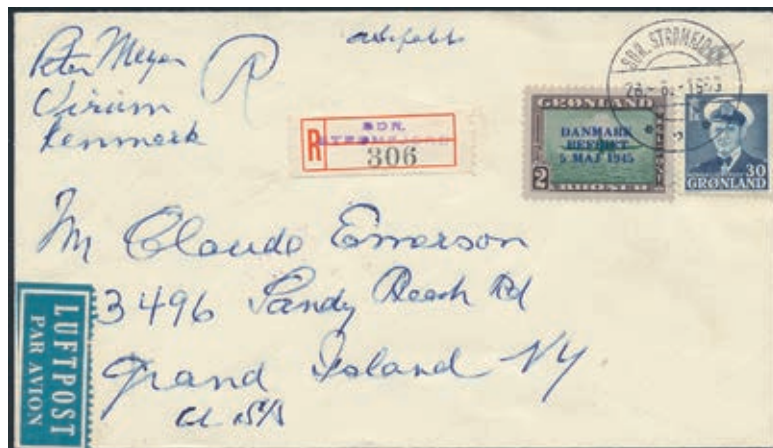 Peter Meyer
Virum
Denmark
R
SDR.
R
306
SDR. STRØMFJORD
GRØNLAND
DANMARK
BEFRIET
5 MAJ 1945
2
KRONER
30
GRØNLAND
Mr Claude Emerson
3496 Sandy Beach Rd
Grand Island NY
LUFTPOST
PAR AVION